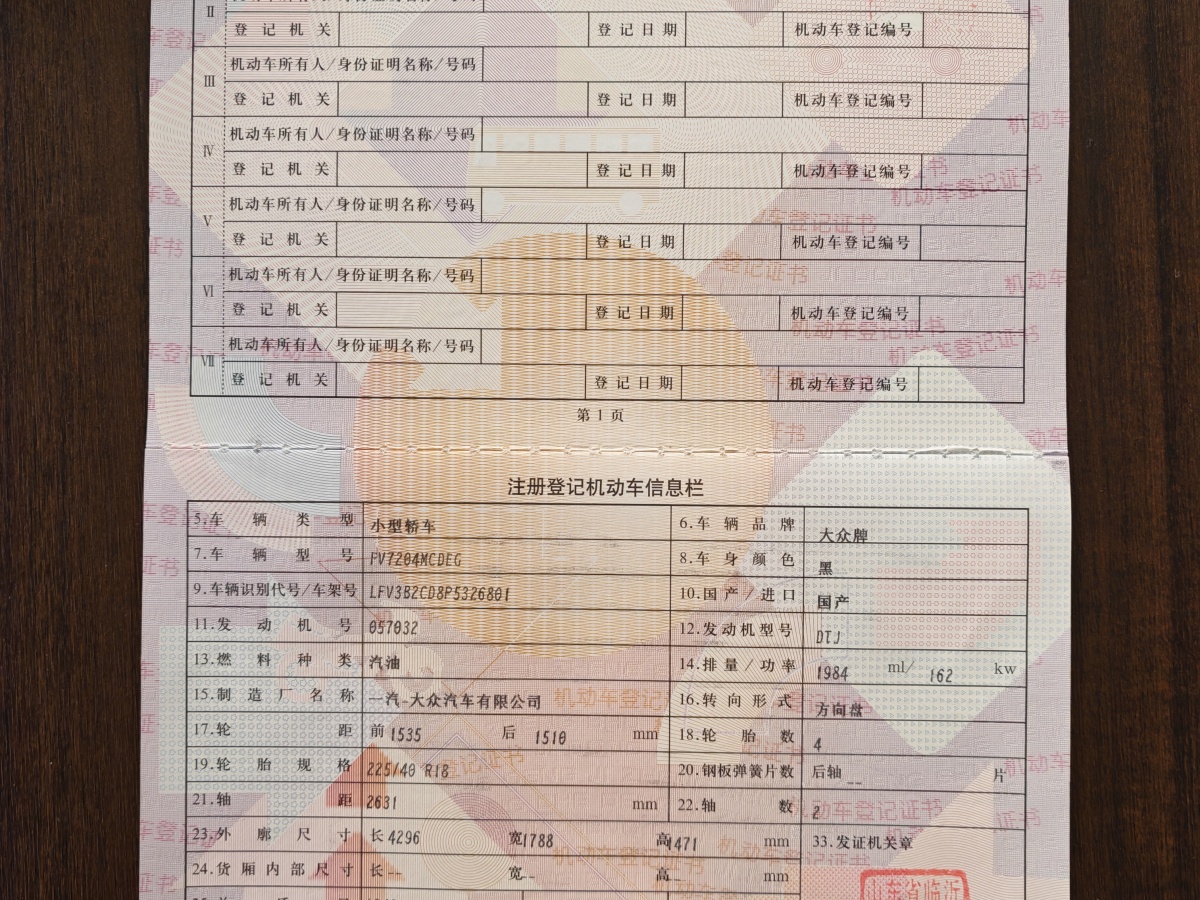 II
登记机关 登记日期 机动车登记编号
III 机动车所有人/身份证明名称/号码
登记机关 登记日期 机动车登记编号
IV 机动车所有人/身份证明名称/号码
登记机关 登记日期 机动车登记编号
V 机动车所有人/身份证明名称/号码
登记机关 登记日期 机动车登记编号
VI 机动车所有人/身份证明名称/号码
登记机关 登记日期 机动车登记编号
VII 机动车所有人/身份证明名称/号码
登记机关 登记日期 机动车登记编号
第1页
注册登记机动车信息栏
5.车辆类型 小型轿车 6.车辆品牌 大众牌
7.车辆型号 FV7204MCDEG 8.车身颜色 黑
9.车辆识别代号/车架号 LFV3B2CD8P5326801 10.国产/进口 国产
11.发动机号 057032 12.发动机型号 DTJ
13.燃料种类 汽油 14.排量/功率 1984 ml/ 162 kw
15.制造厂名称 一汽-大众汽车有限公司 16.转向形式 方向盘
17.轮距 前1535 后1510 mm 18.轮胎数 4
19.轮胎规格 225/40 R18 20.钢板弹簧片数 后轴 -- 片
21.轴距 2631 mm 22.轴数 2
23.外廓尺寸 长4296 宽1788 高1471 mm 33.发证机关章
24.货厢内部尺寸 长-- 宽-- 高-- mm
山东省临沂